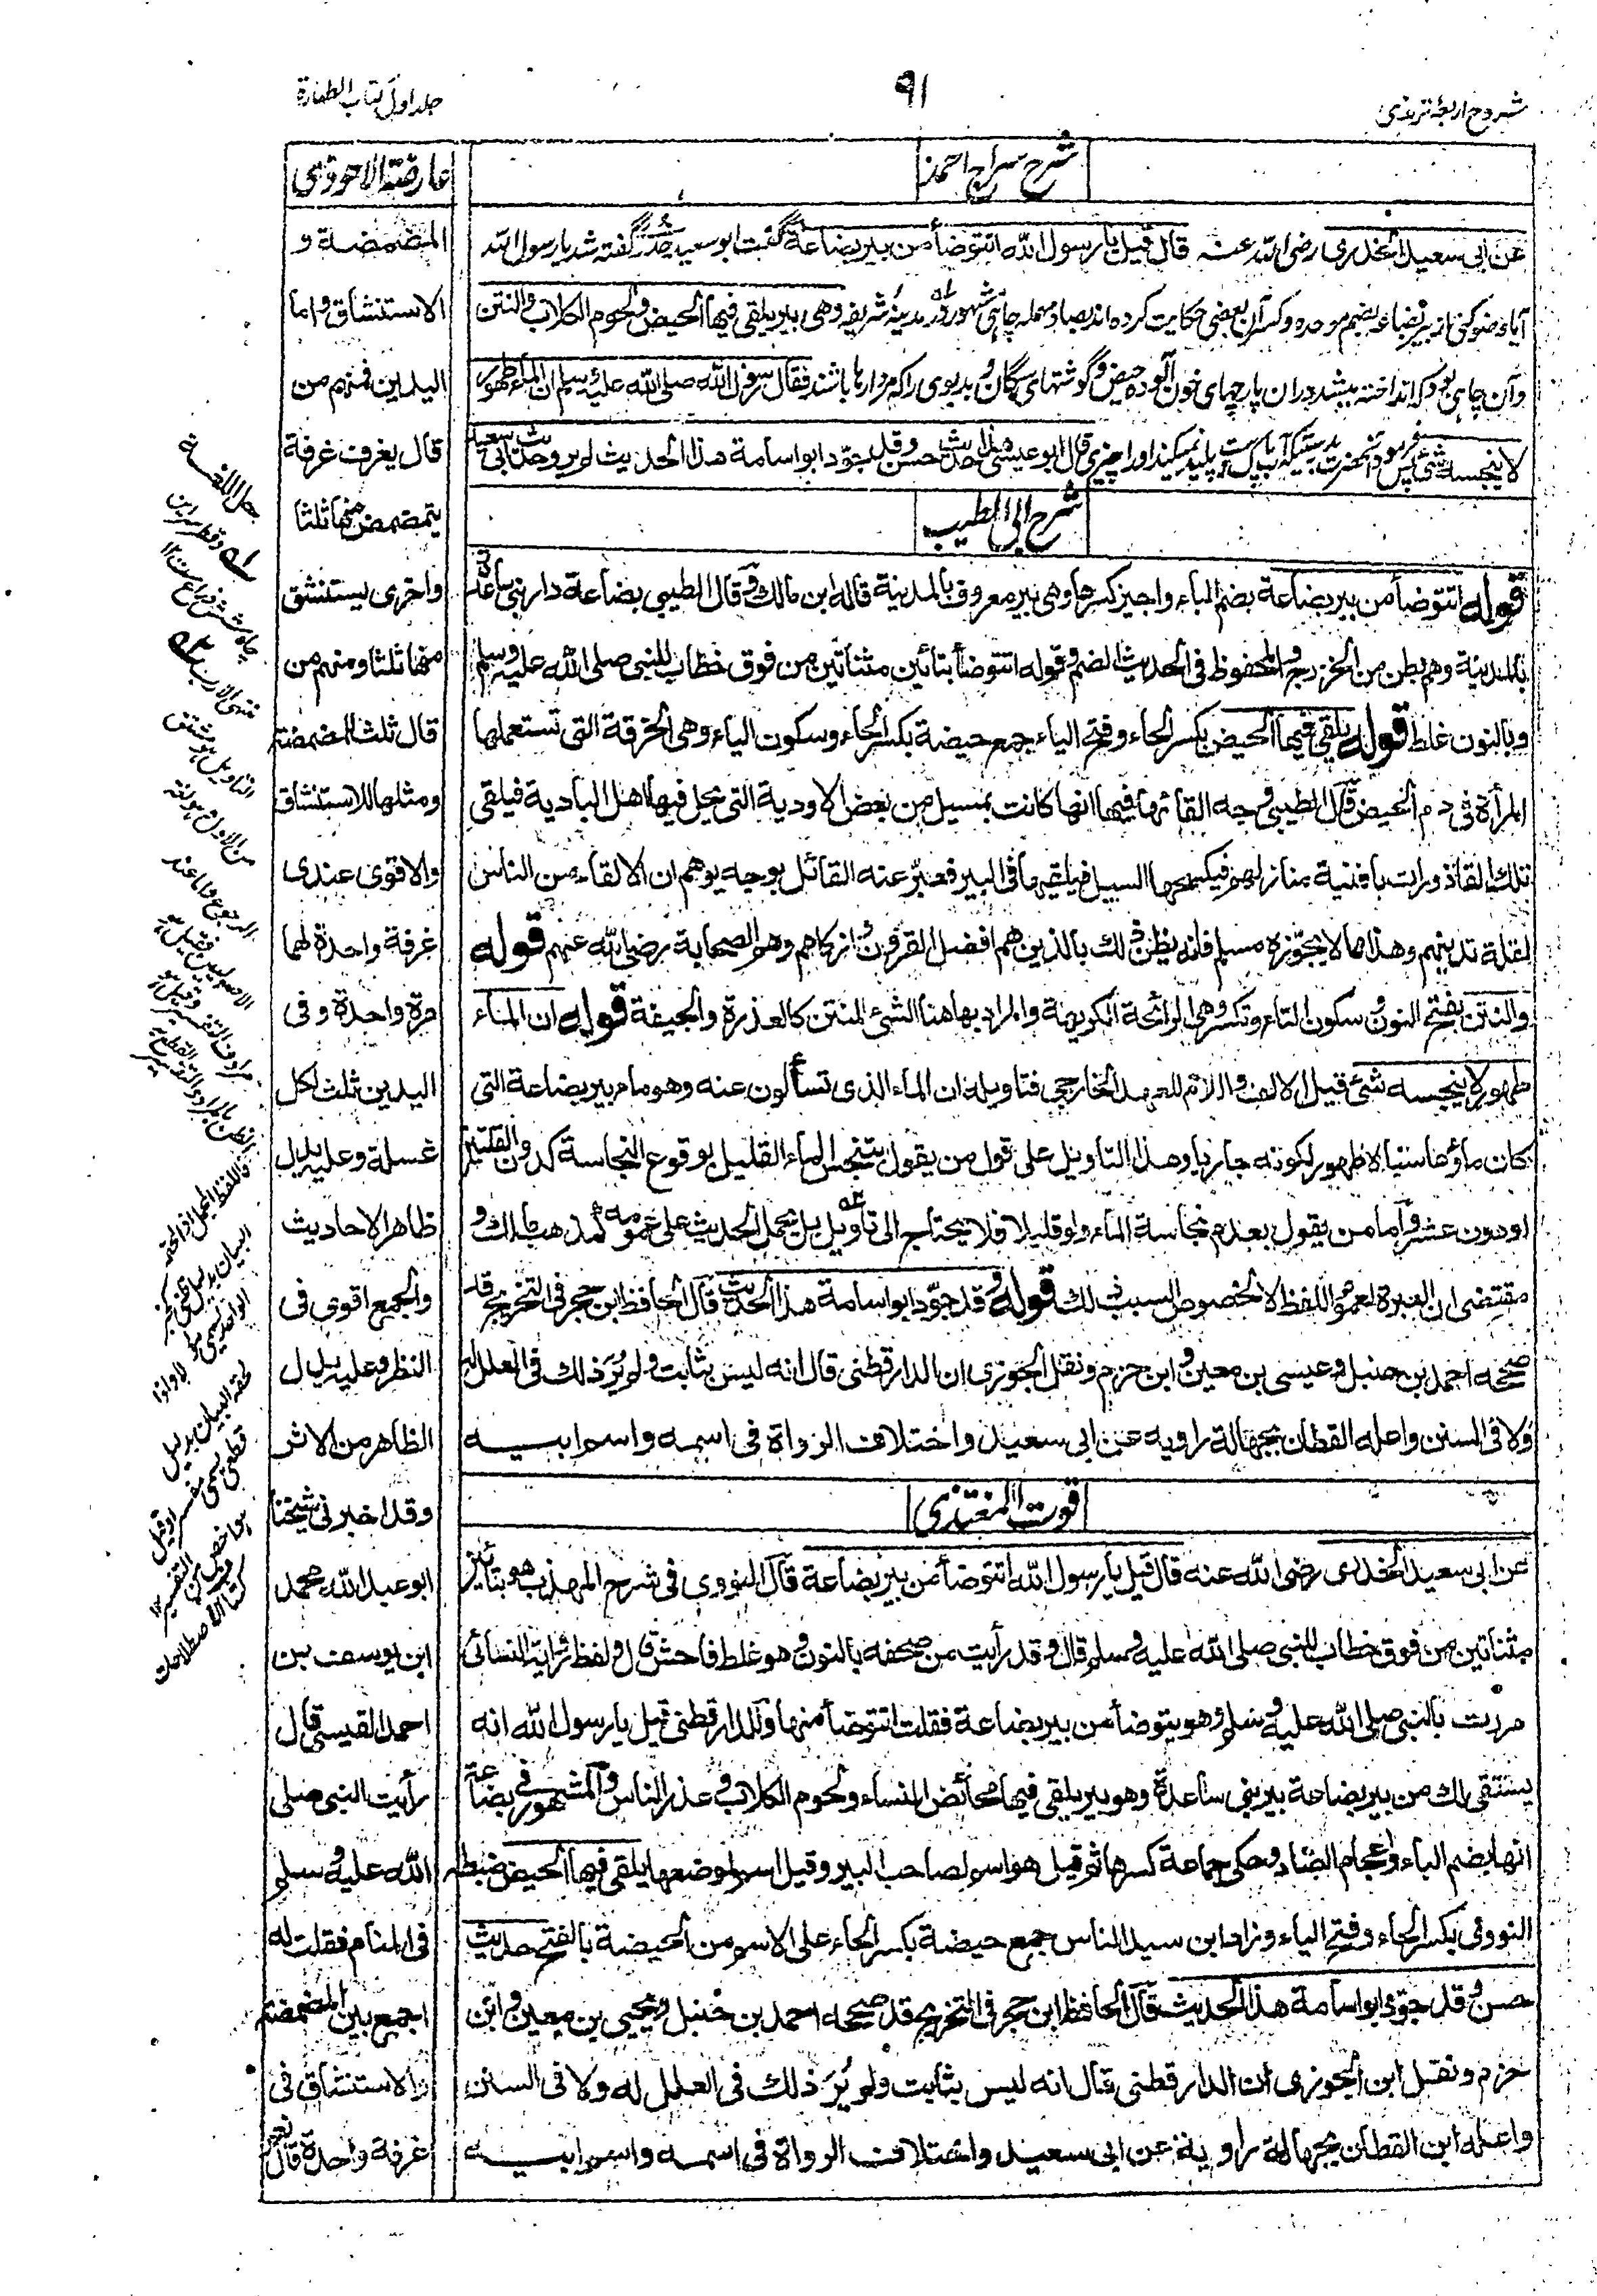 شروح اربعۀ ترمذی
۹۱
جلد اول کتاب الطهارة
شرح سراج احمد
عن ابی سعید الخدری رضی الله عنه قال قیل یا رسول الله انتوضأ من بیر بضاعة گفت ابو سعید خدری گفته شد یا رسول الله
آیا وضو کنی از بیر بضاعه بضم موحده و کسر آن بعضی حکایت کرده اند بصاد مهمله چاهی مشهور در مدینۀ شریفه وهی بیر یلقی فیها الحیض ولحوم الکلاب والنتن
وآن چاهی بود که انداخته میشد دران پارچهای خون آلوده حیض و گوشتهای سگان و بدبوی را که مردارها باشند فقال رسول الله صلی الله علیه وسلم ان الماء طهور
لا ینجسه شیء پس فرمود آنحضرت بدرستیکه آب پاک ست پلید نمیکند اورا چیزی قال ابو عیسی هذا حدیث حسن وقد جود ابو اسامة هذا الحدیث لم یرو حدیث ابی سعید
شرح ابی الطیب
قوله انتوضأ من بیر بضاعة بضم الباء واجیز کسرها وهی بیر معروف بالمدینة قاله ابن مالك وقال الطیبی بضاعة دار بنی ساعدة
بالمدینة وهم بطن من الخزرج والمحفوظ فی الحدیث الضم وقوله انتوضأ بتائین مثناتین من فوق خطاب للنبی صلی الله علیه وسلم
وبالنون غلط قوله یلقی فیها الحیض بکسر الحاء وفتح الیاء جمع حیضة بکسر الحاء وسکون الیاء وهی الخرقة التی تستعملها
المرأة فی دم الحیض قال الطیبی وجه القائها فیها انها کانت بمسیل من بعض الاودیة التی یحل فیها اهل البادیة فیلقی
تلك القاذورات بافنیة منازلهم فیکسحها السیل فیلقیها فی البیر فعبّر عنه القائل بوجه یوهم ان الالقاء من الناس
لقلة تدینهم وهذا مما لا یجوّزه مسلم فانی یظن ذلك بالذین هم افضل القرون وازکاهم وهم الصحابة رضی الله عنهم قوله
والنتن بفتح النون وسکون التاء وتکسر وهی الرائحة الکریهة والمراد بها هنا الشیء المنتن کالعذرة والجیفة قوله ان الماء
طهور لا ینجسه شیء قیل الالف واللام للعهد الخارجی فتاویله ان الماء الذی تسألون عنه وهو ماء بیر بضاعة التی
کان ماؤها سنیا لا ظهور لکونه جاریا وهذا التاویل علی قول من یقول بتنجس الماء القلیل بوقوع النجاسة کدون القلتین
او دون عشر واما من یقول بعدم نجاسة الماء ولو قلیلا فلا یحتاج الی تاویل بل یحمل الحدیث علی عمومه کمذهب مالك و
مقتضی ان العبرة لعموم اللفظ لا لخصوص السبب ذلك قوله وقد جوّد ابو اسامة هذا الحدیث قال الحافظ ابن حجر فی التخریج قد
صححه احمد بن حنبل وعیسی بن معین وابن حزم ونقل الجوزی ان الدارقطنی قال انه لیس بثابت ولم یُرَ ذلك فی العلل له
ولا فی السنن واعله القطان بجهالة راویه عن ابی سعید واختلاف الرواة فی اسمه واسم ابیه
قوت المغتذی
عن ابی سعید الخدری رضی الله عنه قال قیل یا رسول الله انتوضأ من بیر بضاعة قال النووی فی شرح المهذب هو بتائین
مثناتین من فوق خطاب للنبی صلی الله علیه وسلم قال وقد رأیت من صحفه بالنون وهو غلط فاحش قال ولفظ روایة النسائی
مررت بالنبی صلی الله علیه وسلم وهو یتوضأ من بیر بضاعة فقلت اتتوضأ منها وللدارقطنی قیل یا رسول الله انه
یستقی لك من بیر بضاعة بیر بنی ساعدة وهو بیر یلقی فیها محائض النساء ولحوم الکلاب وعذر الناس والمشهور فی بضاعة
انها بضم الباء واعجام الضاد وحکی جماعة کسرها ثم قیل هو اسم لصاحب البیر وقیل اسم لموضعها یلقی فیها الحیض ضبطه
النووی بکسر الحاء وفتح الیاء وزاد ابن سید الناس جمع حیضة بکسر الحاء علی الاسم من الحیضة بالفتح حدیث
حسن وقد جوّد ابو اسامة هذا الحدیث قال الحافظ ابن حجر فی التخریج قد صححه احمد بن حنبل ویحیی بن معین وابن
حزم ونقل ابن الجوزی ان الدارقطنی قال انه لیس بثابت ولم یُرَ ذلك فی العلل له ولا فی السنن
واعله ابن القطان بجهالة راویه عن ابی سعید واختلاف الرواة فی اسمه واسم ابیه
عارضة الاحوذی
المضمضة و
الاستنشاق واما
الیدین فمنهم من
قال یغرف غرفة
یتمضمض منها ثلثا
واخری یستنشق
منها ثلثا ومنهم من
قال ثلث للمضمضة
ومثلها للاستنشاق
والاقوی عندی
غرفة واحدة لهما
مرة واحدة وفی
الیدین ثلث لکل
غسلة وعلیه یدل
ظاهر الاحادیث
والجمع اقوی فی
النظر وعلیه یدل
الظاهر من الاثر
وقد اخبرنی شیخنا
ابو عبد الله محمد
ابن یوسف بن
احمد القیسی قال
رأیت النبی صلی
الله علیه وسلم
فی المنام فقلت له
اجمع بین المضمضة
والاستنشاق فی
غرفة واحدة قال نعم